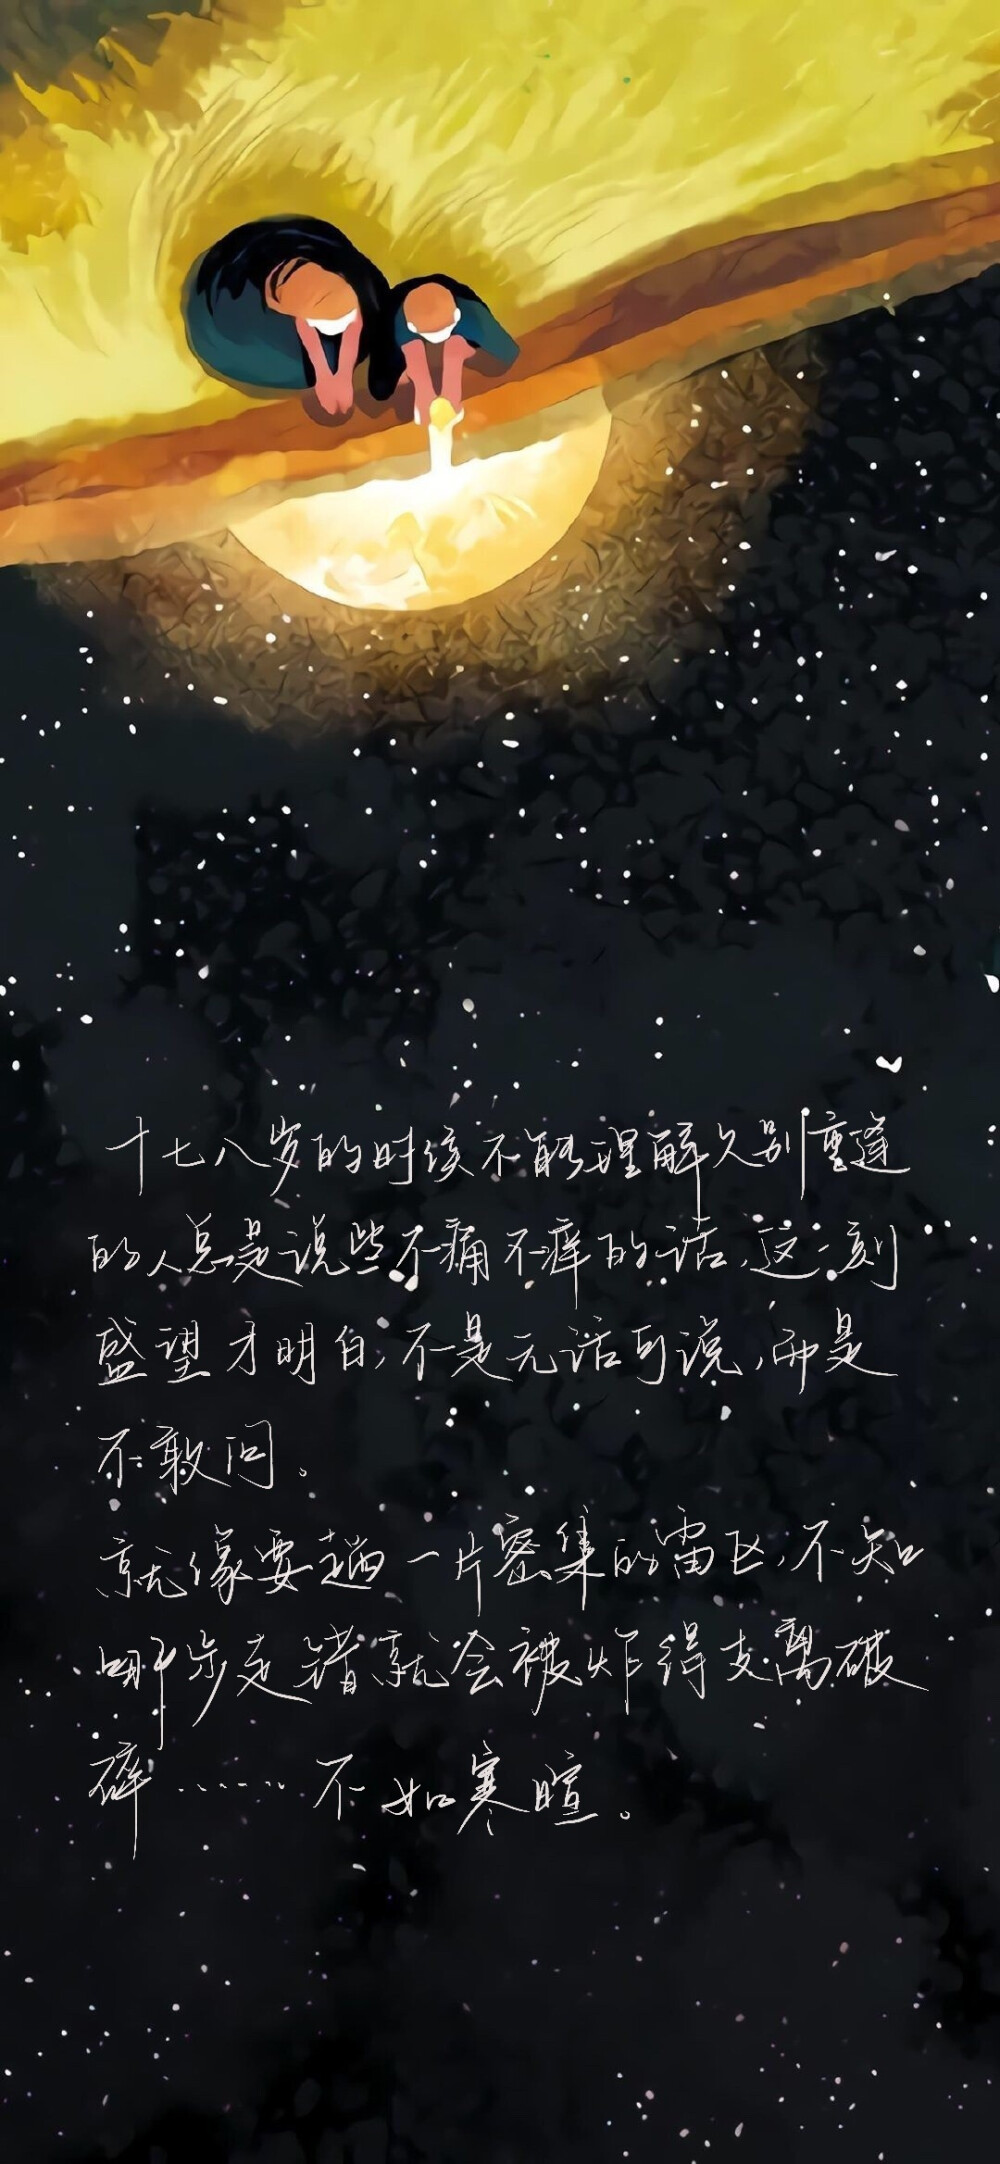 十七八岁的时候不能理解久别重逢
的人总是说些不痛不痒的话,这一刻
盛望才明白,不是无话可说,而是
不敢问。
就像要趟一片密集的雷区,不知
哪步走错就会被炸得支离破
碎……不如寒暄。